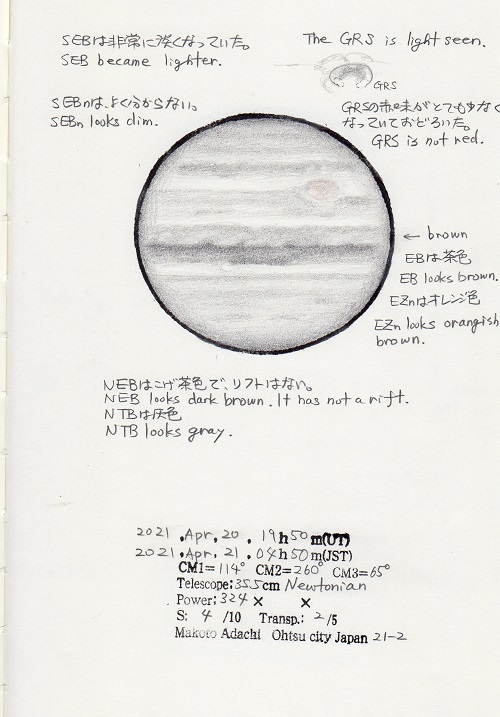 SEBは非常に淡くなっていた。
SEB became lighter.
The GRS is light seen.
GRS
SEBnは、よく分からない。
SEBn looks dim.
GRSの赤味がとても少なく
なっていておどろいた。
GRS is not red.
← brown
EBは茶色
EB looks brown.
EZnはオレンジ色
EZn looks orangish
brown.
NEBはこげ茶色で、リフトはない。
NEB looks dark brown. It has not a rift.
NTBは灰色
NTB looks gray.
2021 .Apr. 20 . 19h50m(UT)
2021 .Apr. 21 . 04h50m(JST)
CM1=114° CM2=260° CM3=65°
Telescope:35.5cm Newtonian
Power:324× ×
S: 4 /10 Transp.: 2/5
Makoto Adachi Ohtsu city Japan 21-2